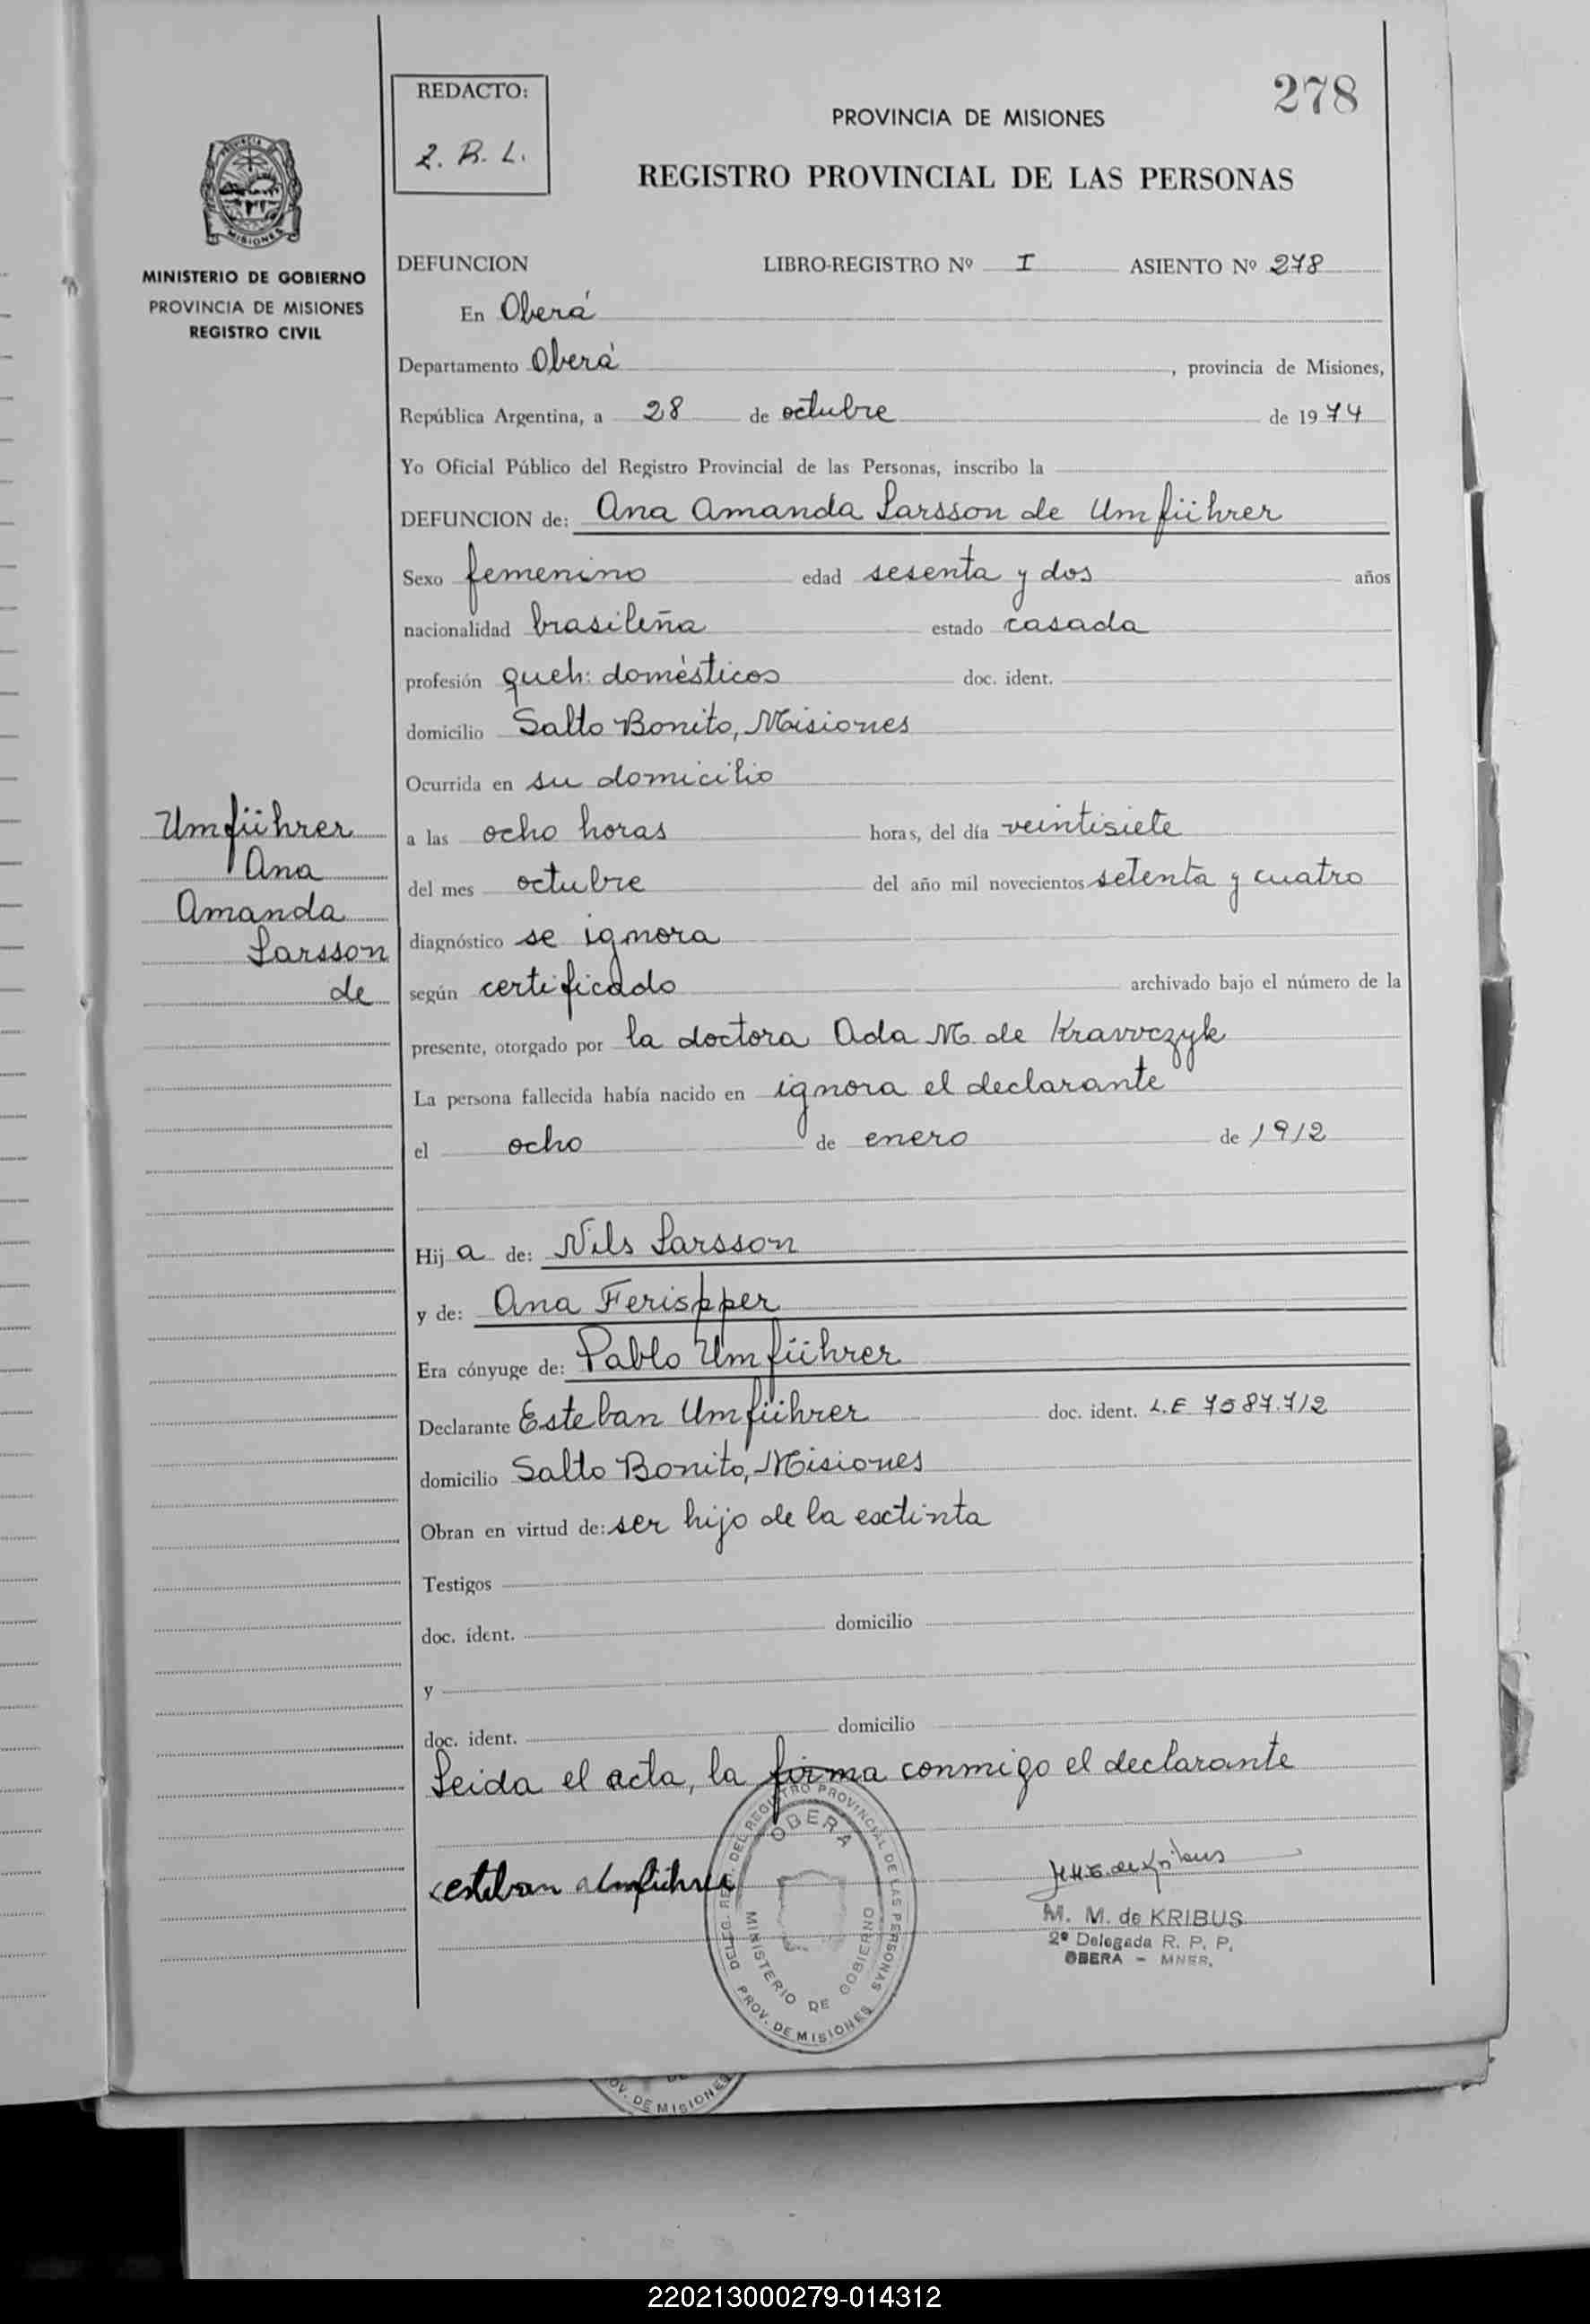 278
REDACTO:
Z. B. L.
PROVINCIA DE MISIONES
REGISTRO PROVINCIAL DE LAS PERSONAS
PROVINCIA DE
MISIONES
MINISTERIO DE GOBIERNO
PROVINCIA DE MISIONES
REGISTRO CIVIL
DEFUNCION LIBRO-REGISTRO Nº I ASIENTO Nº 278
En Oberá
Departamento Oberá, provincia de Misiones,
República Argentina, a 28 de octubre de 1974
Yo Oficial Público del Registro Provincial de las Personas, inscribo la
DEFUNCION de: Ana Amanda Larsson de Umführer
Sexo femenino edad sesenta y dos años
nacionalidad brasileña estado casada
profesión queh: domésticos doc. ident.
domicilio Salto Bonito, Misiones
Ocurrida en su domicilio
a las ocho horas horas, del día veintisiete
del mes octubre del año mil novecientos setenta y cuatro
diagnóstico se ignora
según certificado archivado bajo el número de la
presente, otorgado por la doctora Ada M. de Krawczyk
La persona fallecida había nacido en ignora el declarante
el ocho de enero de 1912
Hija de: Nils Larsson
y de: Ana Ferispper
Era cónyuge de: Pablo Umführer
Declarante Esteban Umführer doc. ident. L.E 7587.712
domicilio Salto Bonito, Misiones
Obran en virtud de: ser hijo de la extinta
Testigos
doc. ident. domicilio
y
doc. ident. domicilio
Leida el acta, la firma conmigo el declarante
Umführer
Ana
Amanda
Larsson
de
esteban Umführer
DELEG. REG. DEL REGISTRO PROVINCIAL DE LAS PERSONAS
OBERA
MINISTERIO DE GOBIERNO
PROV. DE MISIONES
M. M. de KRIBUS
2º Delegada R. P. P.
OBERA - MNES.
OV. DE MISIONES
220213000279-014312